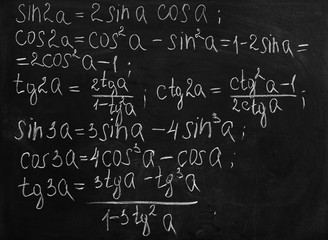 sin2a=2sina cosa;
cos2a=cos²a-sin²a=1-2sina=
=2cos²a-1;
tg2a=2tga/1-tg²a; ctg2a=ctg²a-1/2ctga;
sin3a=3sina-4sin³a;
cos3a=4cos³a-cosa;
tg3a=3tga-tg³a/1-3tg²a;